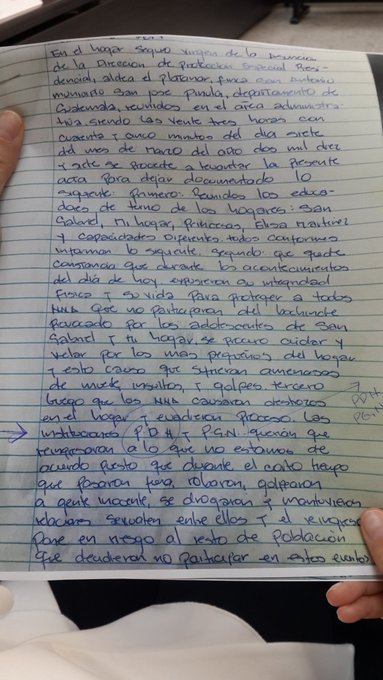 En el hogar seguro virgen de la Asuncion
de la Direccion de proteccion Especial Resi-
dencial, aldea el platanar, finca san Antonio
municipio San jose Pinula, departamento de
Guatemala, reunidos en el area administra-
tiva, siendo las veinte tres horas con
cuarenta y cinco minutos del dia siete
del mes de Marzo del año dos mil diez
y siete se procede a levantar la presente
acta para dejar documentado lo
siguiente: Primero: Reunidos los educa-
dores de turno de los hogares: San
Gabriel, Mi hogar, princesas, Elisa Martinez
y capacidades Diferentes todos conformes
informan lo siguiente. segundo: que quede
constancia que durante los acontecimientos
del dia de hoy, expusieron su integridad
fisica y su vida para proteger a todos
NNA que no participaron del bochinche
provocado por los adolescentes de San
Gabriel y tu hogar, se procuro cuidar y
velar por los mas pequeños del hogar
y esto causo que sufrieran amenazas
de muerte, insultos, y golpes. tercero
luego que los NNA causaran destrozos
en el hogar y evadieron proceso. Las
instituciones PDH y PGN querian que
reingresaran a lo que no estamos de
acuerdo puesto que durante el corto tiempo
que pasaron fuera, robaron, golpearon
a gente inocente, se drogaron y mantuvieron
relaciones sexuales entre ellos y el reingreso
pone en riesgo al resto de población
que decidieron no participar en estos eventos
PDH
PGN